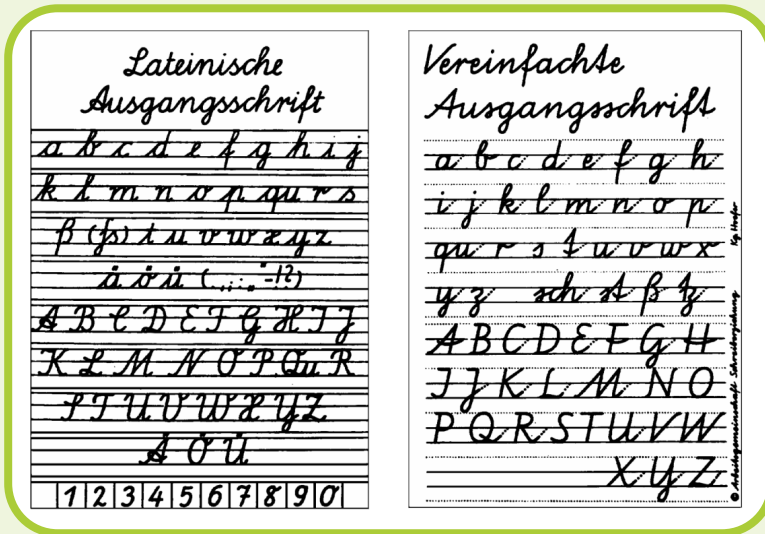 Lateinische
Ausgangsschrift
a b c d e f g h i j
k l m n o p qu r s
ß (ſs) t u v w x y z
ä ö ü (.,;:„"-!?)
A B C D E F G H I J
K L M N O P Qu R
S T U V W X Y Z
Ä Ö Ü
1 2 3 4 5 6 7 8 9 0
Vereinfachte
Ausgangsschrift
a b c d e f g h
i j k l m n o p
qu r s t u v w x
y z sch st ß tz
A B C D E F G H
I J K L M N O
P Q R S T U V W
X Y Z
© Arbeitsgemeinschaft Schreiberziehung